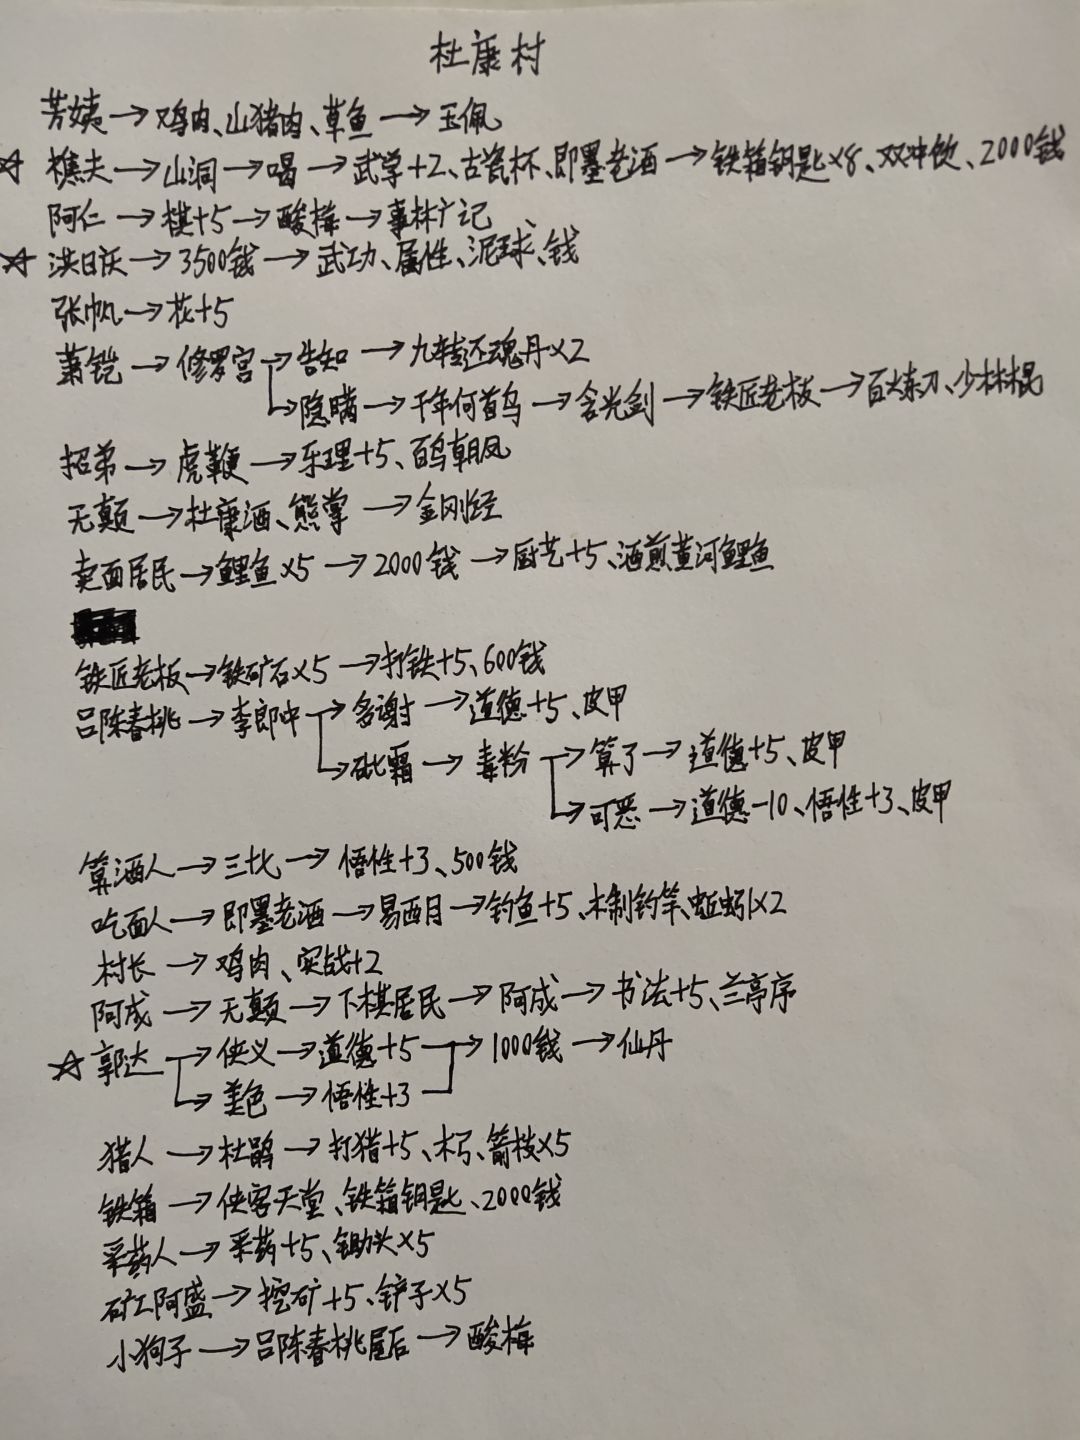 杜康村
芳姨→鸡肉、山猪肉、草鱼→玉佩
☆ 樵夫→山洞→喝→武学+2、古瓷杯、即墨老酒→铁箱钥匙×8、双冲饮、2000钱
阿仁→棋+5→酸梅→事林广记
☆ 洪日庆→3500钱→武功、属性、泥球、钱
张帆→花+5
萧铠→修罗宫→告知→九转还魂丹×2
→隐瞒→千年何首乌→含光剑→铁匠老板→百炼刀、少林棍
招弟→虎鞭→乐理+5、百鸟朝凤
无颠→杜康酒、熊掌→金刚经
卖面居民→鲤鱼×5→2000钱→厨艺+5、酒煎黄河鲤鱼
铁匠老板→铁矿石×5→打铁+5、600钱
吕陈春桃→李郎中→多谢→道德+5、皮甲
→砒霜→毒粉→算了→道德+5、皮甲
→可恶→道德-10、悟性+3、皮甲
算酒人→三七→悟性+3、500钱
吃面人→即墨老酒→易酉月→钓鱼+5、木制钓竿、蚯蚓×2
村长→鸡肉、实战+2
阿成→无颠→下棋居民→阿成→书法+5、兰亭序
☆ 郭达→侠义→道德+5→1000钱→仙丹
→美色→悟性+3
猎人→杜鹃→打猎+5、木弓、箭枝×5
铁箱→侠客天堂、铁箱钥匙、2000钱
采药人→采药+5、锄头×5
矿工阿盛→挖矿+5、铲子×5
小狗子→吕陈春桃屋后→酸梅